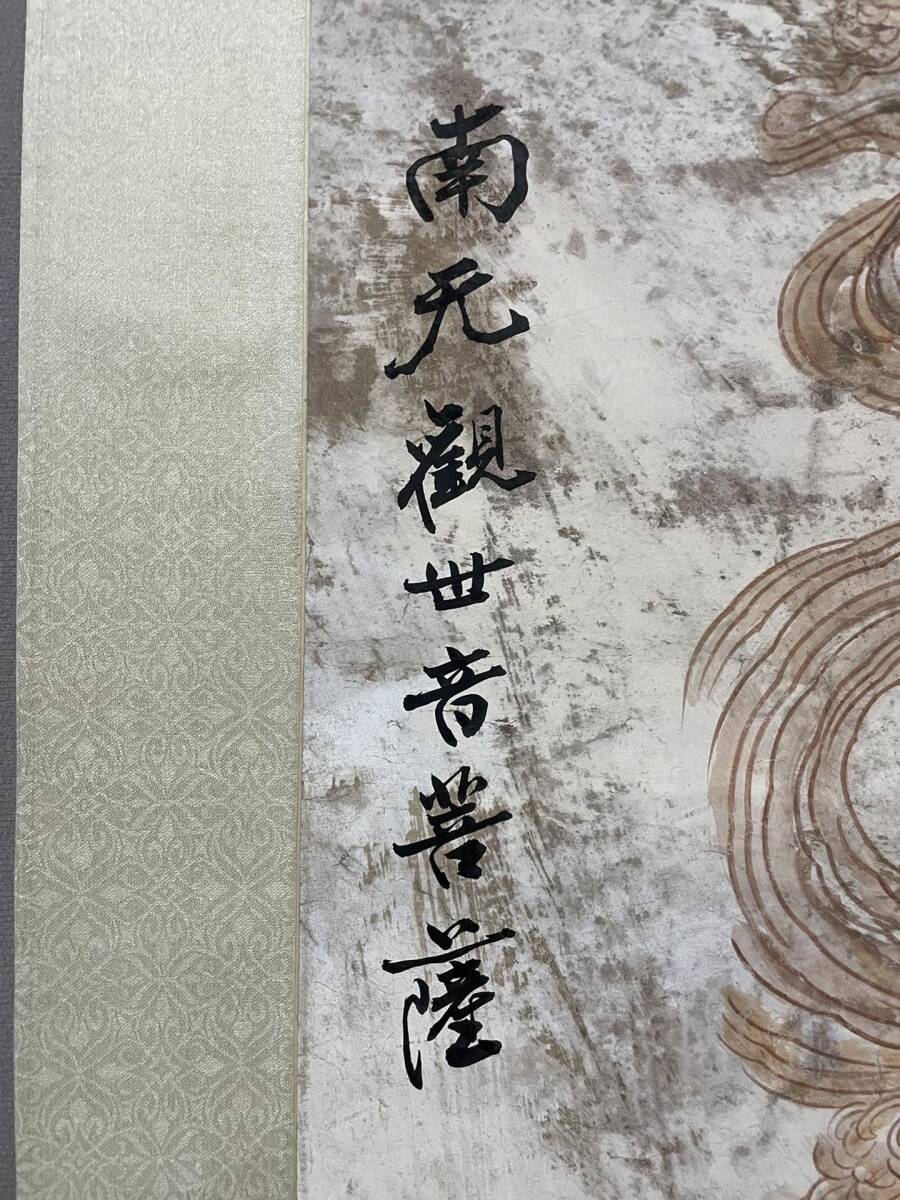 南无觀世音菩薩